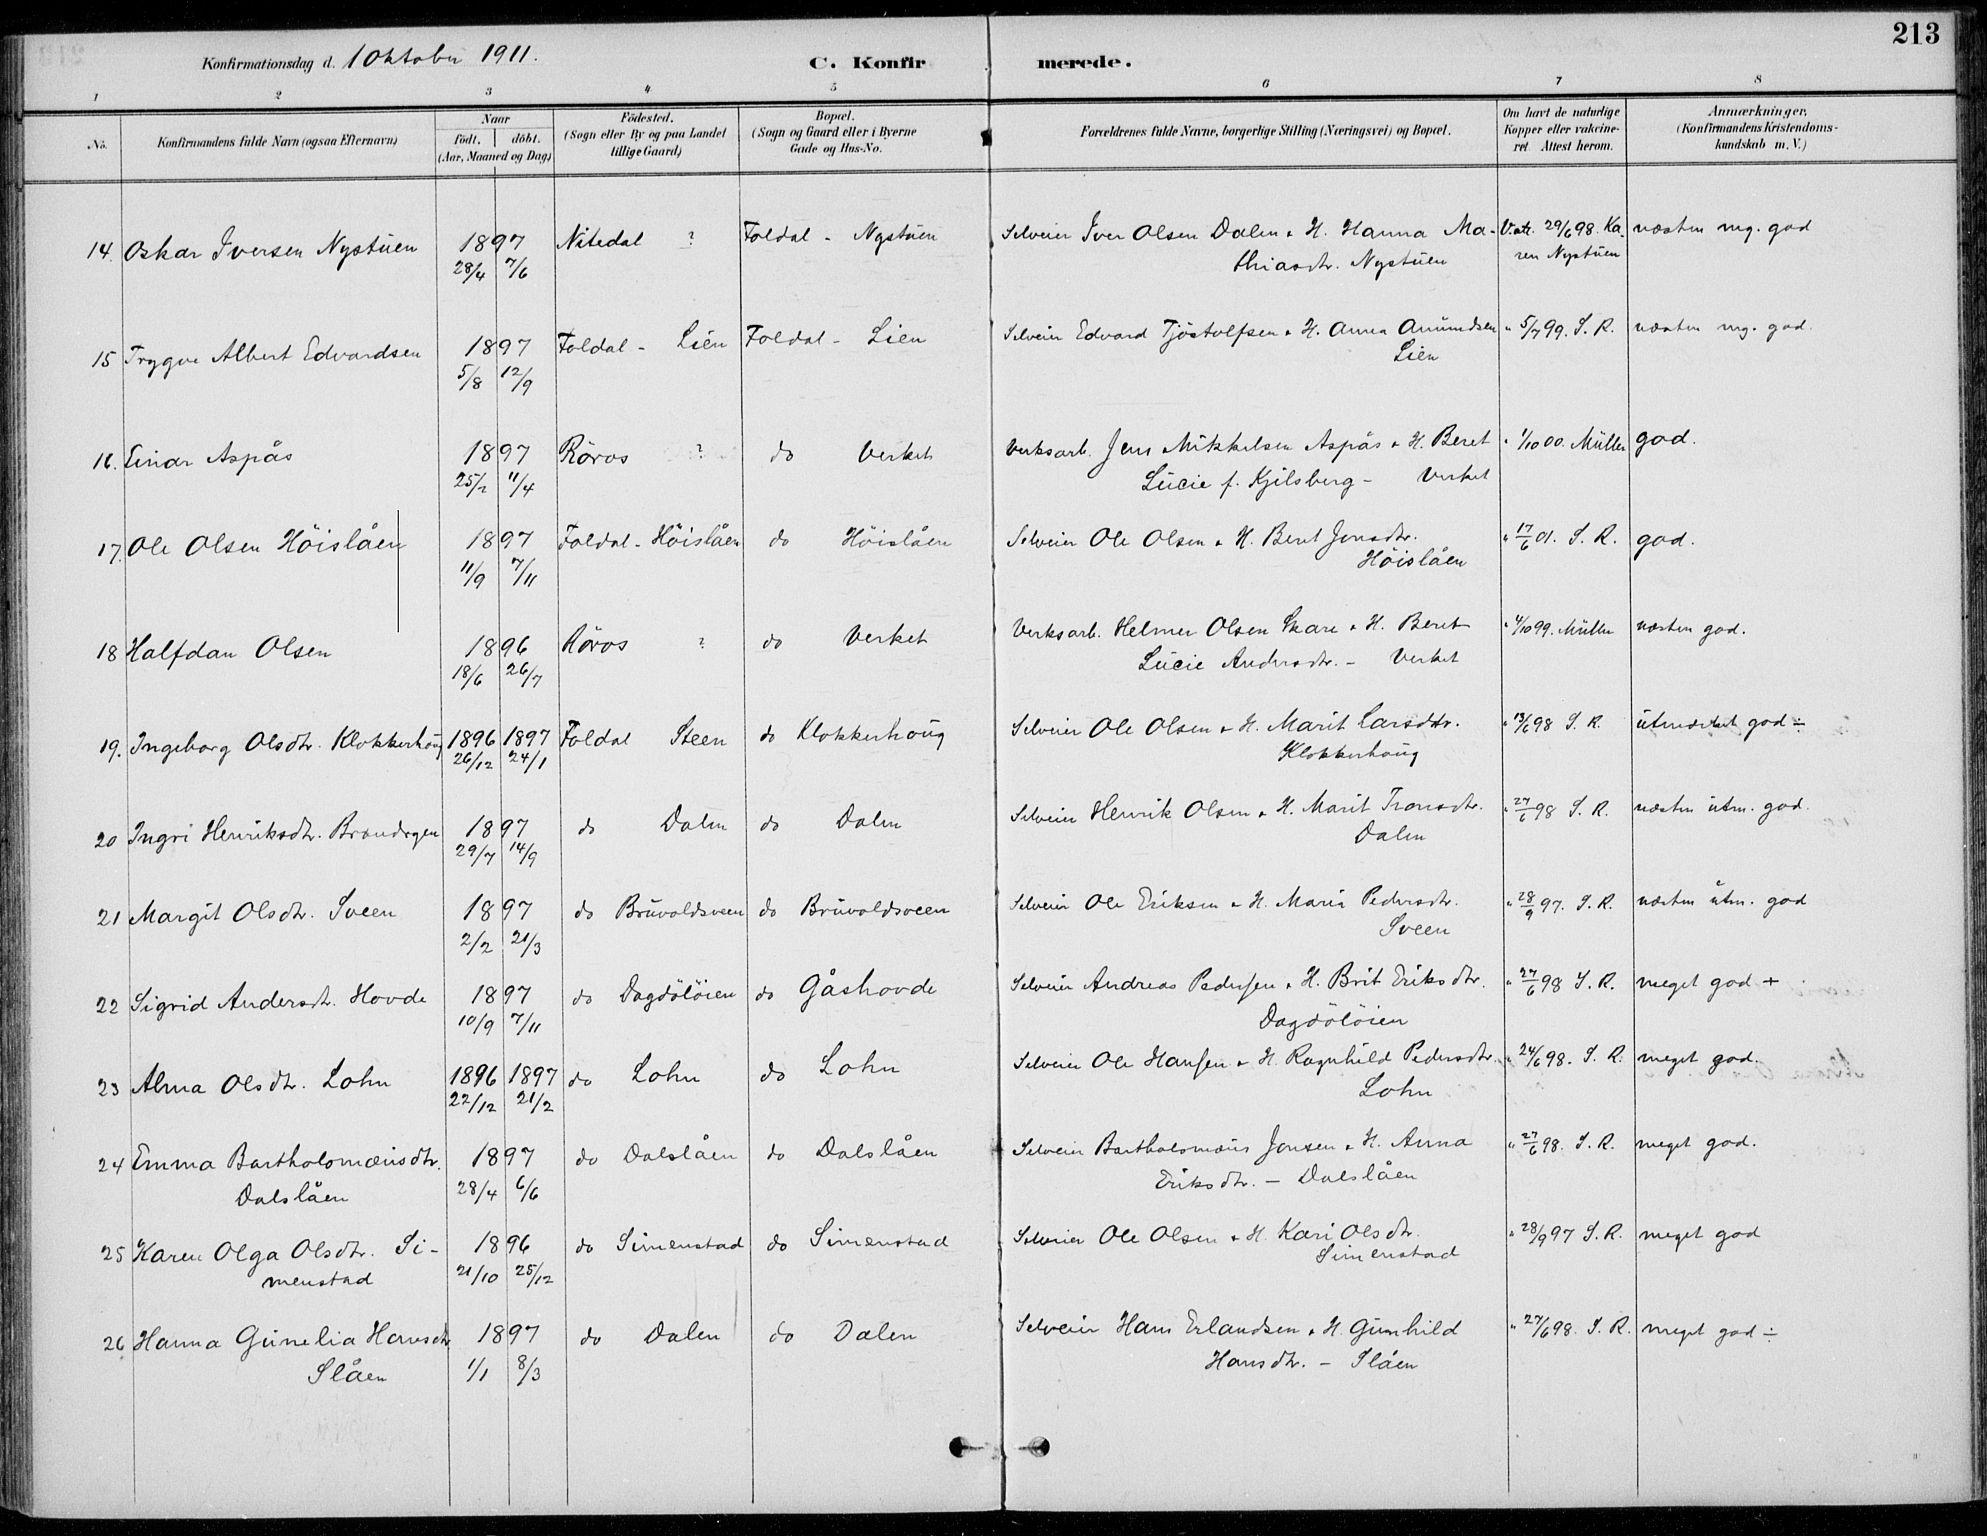 213
Konfirmationsdag d. 1 Oktober 1911.
C. Konfirmerede.
1 2 3 4 5 6 7 8
No. Konfirmandens fulde Navn (ogsaa Efternavn) Naar født. døbt. (Aar, Maaned og Dag) Fødested. (Sogn eller By og paa Landet tillige Gaard) Bopæl. (Sogn og Gaard eller i Byerne Gade og Hus-No. Forældrenes fulde Navne, borgerlige Stilling (Næringsvei) og Bopæl. Om havt de naturlige Kopper eller vakcineret. Attest herom. Anmærkninger, (Konfirmandens Kristendomskundskab m. V.)
14. Oskar Iversen Nystuen 1897 Nitedal ? Foldal - Nystuen Selveier Iver Olsen Dalen & H. Hanna Ma- Vatt. 29/6 98. Ka- næsten mg. god
28/4 7/6 thiasdtr. Nystuen ren Nystuen
15 Trygve Albert Edvardsen 1897 Foldal - Lien Foldal - Lien Selveier Edvard Tjöstolfsen & H. Anna Amundsen " 5/7 99. S. R. næsten mg. god.
5/8 12/9 Lien
16. Einar Aspås 1897 Röros ? do Verket Verksarb. Jens Mikkelsen Aspås & H. Beret " 1/10 00. Müller god.
25/2 11/4 Lucie f. Kjilsberg - Verket
17. Ole Olsen Höislåen 1897 Foldal - Höislåen do Höislåen Selveier Ole Olsen & H. Beret Jonsdtr. " 17/6 01. S. R. god.
11/9 7/11 Höislåen
18 Halfdan Olsen 1896 Röros ? do Verket Verksarb. Helmer Olsen Skare & H. Beret " 4/10 99. Müller næsten god.
18/6 26/7 Lucie Andersdtr. - Verket
19. Ingeborg Olsdtr. Klokkerhoug 1896 1897 Foldal Steen do Klokkerhoug Selveier Ole Olsen & H. Marit Larsdtr. " 13/6 98 S. R. utmærket god ÷
26/12 24/1 Klokkerhoug
20 Ingri Henriksdtr. Brændryen 1897 do Dalen do Dalen Selveier Henrik Olsen & H. Marit Tronsdtr. " 27/6 98 S. R. næsten utm. god.
29/7 14/9 Dalen
21 Margit Olsdtr. Sveen 1897 do Bruvoldsveen do Bruvoldsveen Selveier Ole Eriksen & H. Maria Pedersdtr. " 28/9 97. S. R. næsten utm. god
2/2 21/3 Sveen
22 Sigrid Andersdtr. Hovde 1897 do Dagdölöien do Gåshovde Selveier Andreas Pedersen & H. Brit Eriksdtr. " 27/6 98 S. R. meget god +
10/9 7/11 Dagdölöien
23 Alma Olsdtr. Lohn 1896 1897 do Lohn do Lohn Selveier Ole Hansen & H. Ragnhild Pedersdtr. " 24/6 98. S. R. meget god.
22/12 21/2 Lohn
24 Emma Bartholomæusdtr. 1897 do Dalslåen do Dalslåen Selveier Bartholomæus Jonsen & H. Anna " 27/6 98. S. R. meget god.
Dalslåen 28/4 6/6 Eriksdtr. - Dalslåen
25 Karen Olga Olsdtr. Si- 1896 do Simenstad do Simenstad Selveier Ole Olsen & H. Kari Olsdtr. " 28/9 97 S. R. meget god
menstad 21/10 25/12 Simenstad
26 Hanna Gunelia Hansdtr. 1897 do Dalen do Dalen Selveier Hans Erlandsen & H. Gunhild " 27/6 98. S. R. meget god ÷
Slåen 1/1 8/3 Hansdtr. - Slåen